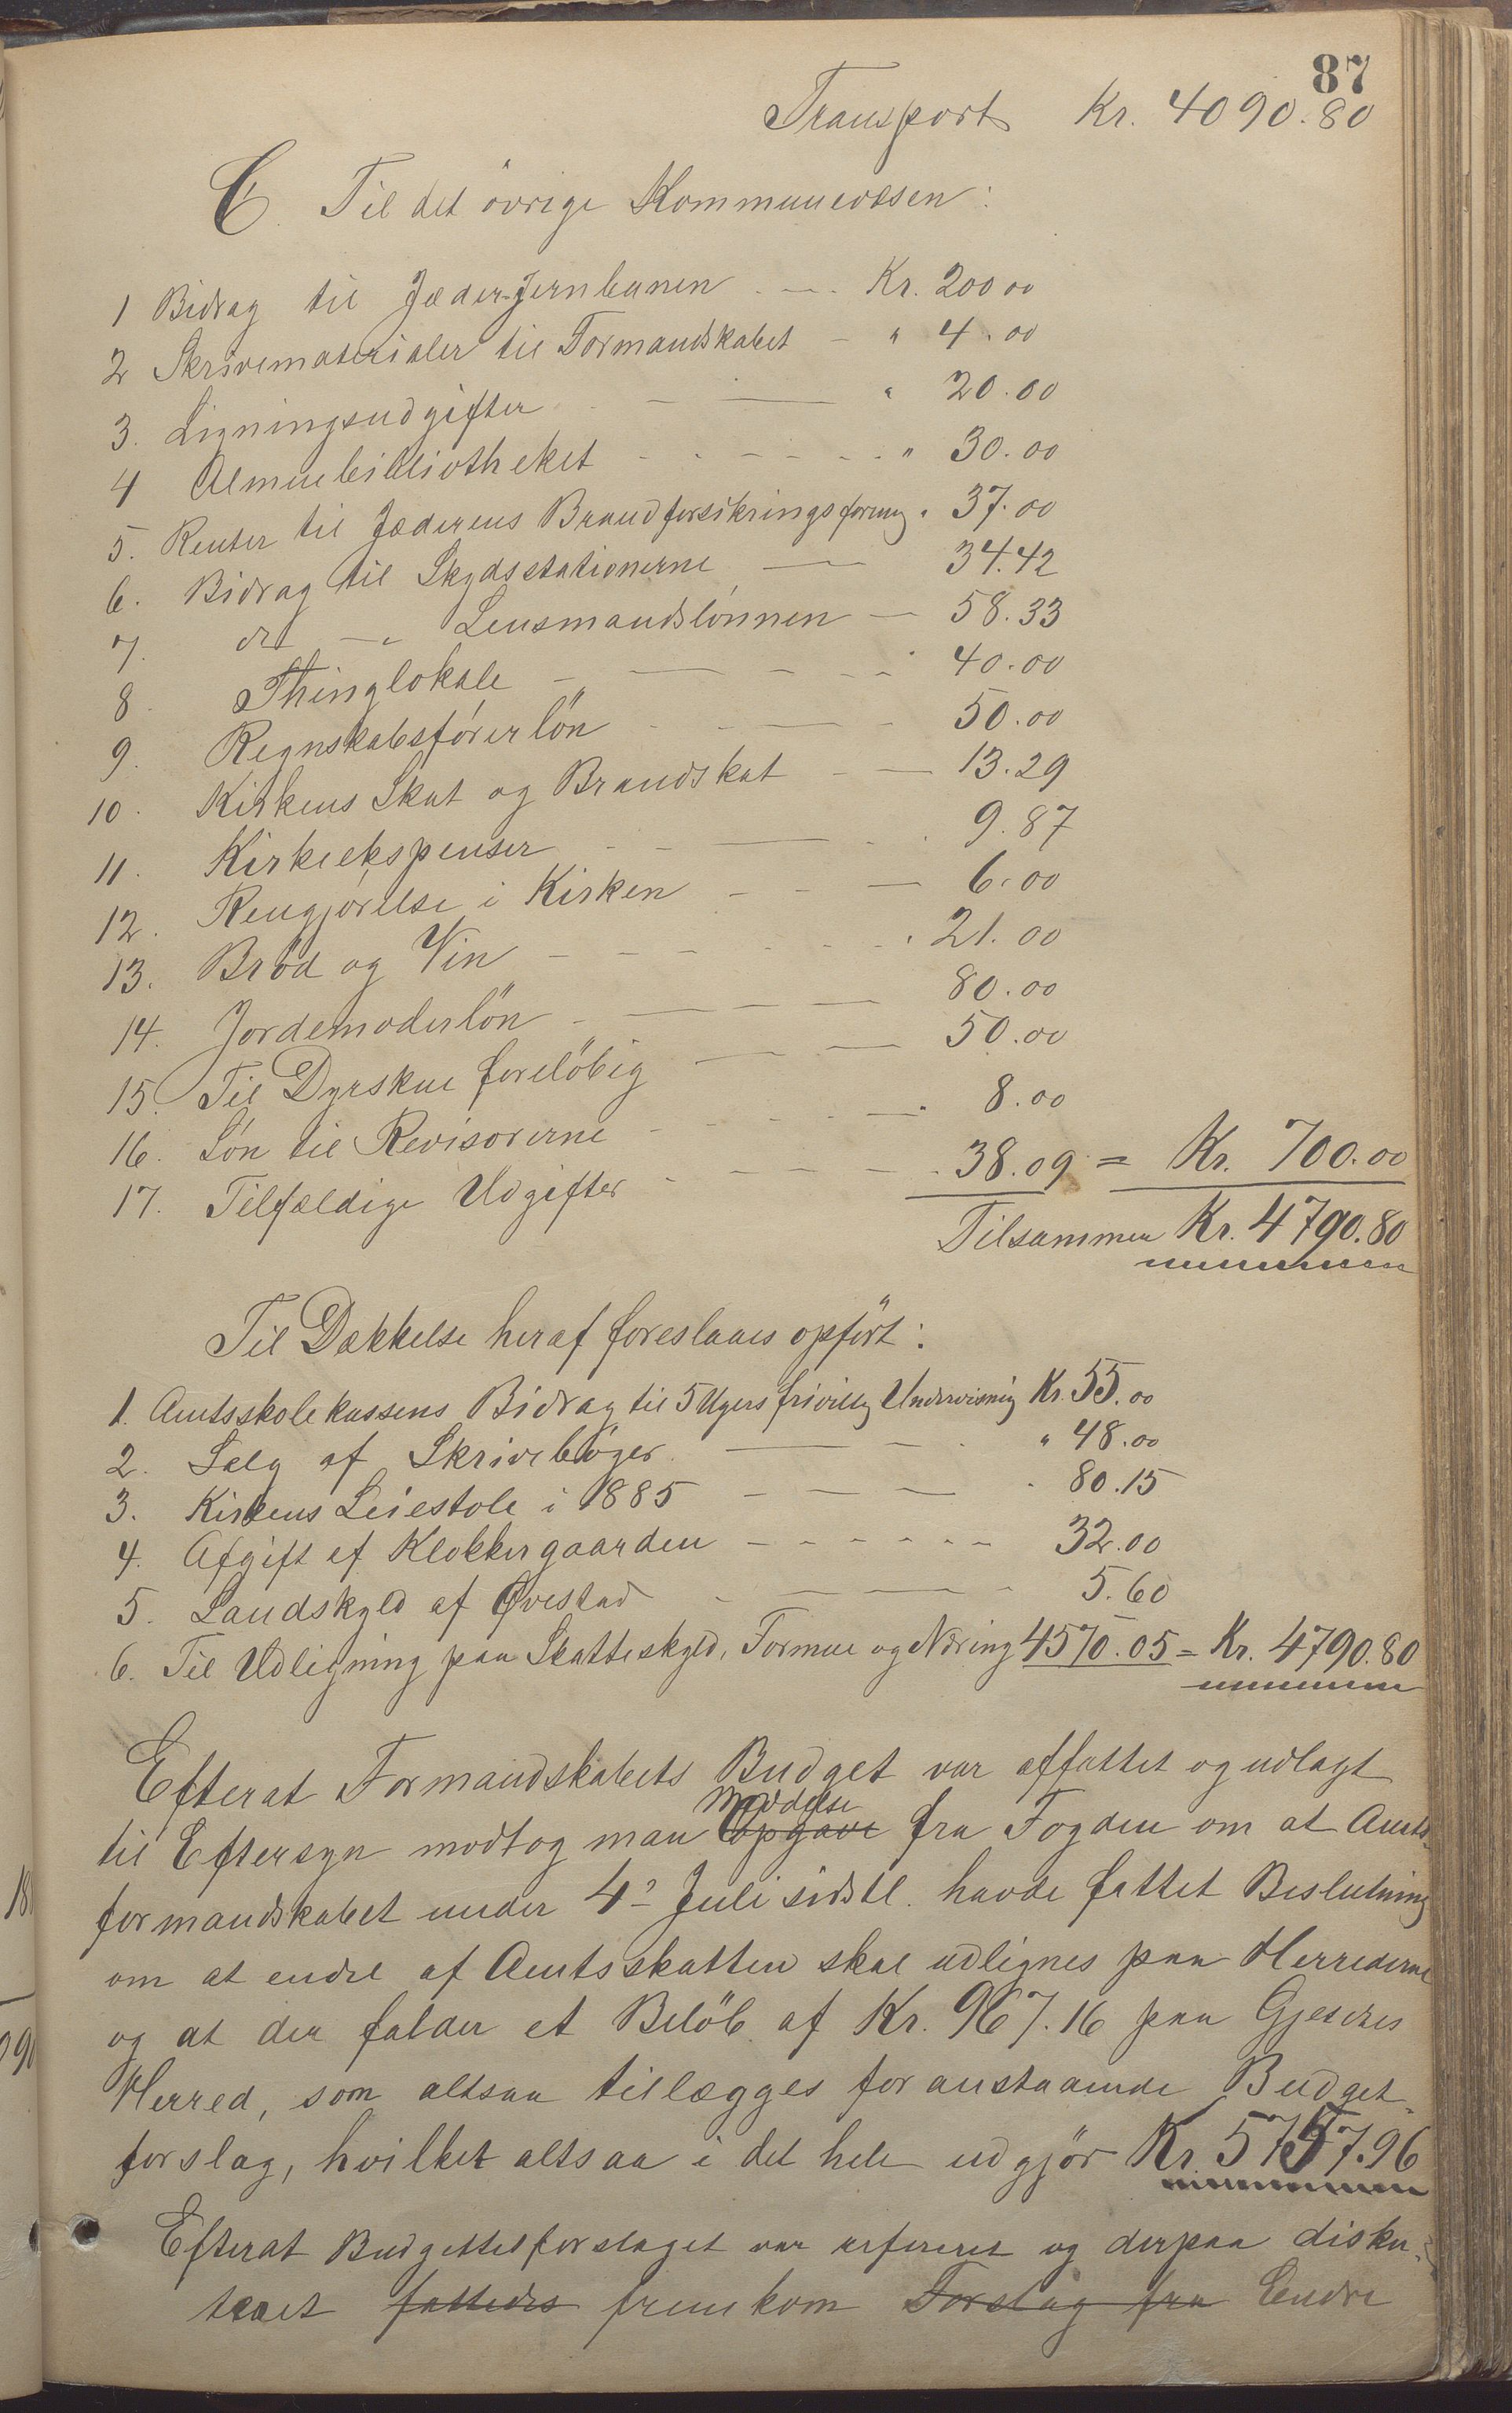 87
Transport Kr. 4090.80
C. Til det övrige Kommunevæsen:
1 Bidrag til Jæder-Jernbanen Kr. 200 00
2 Skrivematerialer til Formandskabet " 4.00
3. Ligningsudgifter " 20.00
4 Almuebibliotheket " 30.00
5. Renter til Jæderens Brandforsikringsforeng " 37.00
6. Bidrag til Skydsstationerne 34.42
7. do — " Lensmandslönnen 58.33
8. Thinglokale 40.00
9. Regnskabsförerlön 50.00
10. Kirkens Skat og Brandskat 13.29
11. Kirkeekspenser 9.87
12. Rengjörelse i Kirken 6.00
13. Bröd og Vin 21.00
14. Jordemoderlön 80.00
15. Til Dyrskue foreløbig 50.00
16. Lön til Revisorerne 8.00
17. Tilfældige Udgifter 38.09 = Kr. 700.00
Tilsammen Kr. 4790.80
Til Dækkelse heraf foreslaaes opfört:
1. Amtsskolekassens Bidrag til 5 Ugers frivillig Undervisning Kr. 55.00
2. Salg af Skrivebøger " 48.00
3. Kirkens Leiestole i 1885 80.15
4. Afgift af Klokkergaarden 32.00
5. Landskyld af Qvestad 5.60
6. Til Udligning paa Skatteskyld, Formue og Næring 4570.05 = Kr. 4790.80
Efterat Formandskabets Budget var affattet og udlagt
til Eftersyn modtog man Opgave fra Fogden om at Amts-
formandskabet under 4de Juli sidstl. havde fattet Beslutning
om at endel af Amtsskatten skal udlignes paa Herrederne
og at der falder et Belöb af Kr. 967.16 paa Gjesdals
Herred, som altsaa tillægges foranstaaende Budget-
forslag, hvilket altsaa i det hele udgjör Kr. 5757.96
Efterat Budgettetforslaget var refereret og derpaa disku-
teret fattedes fremkom Forslag fra Endre